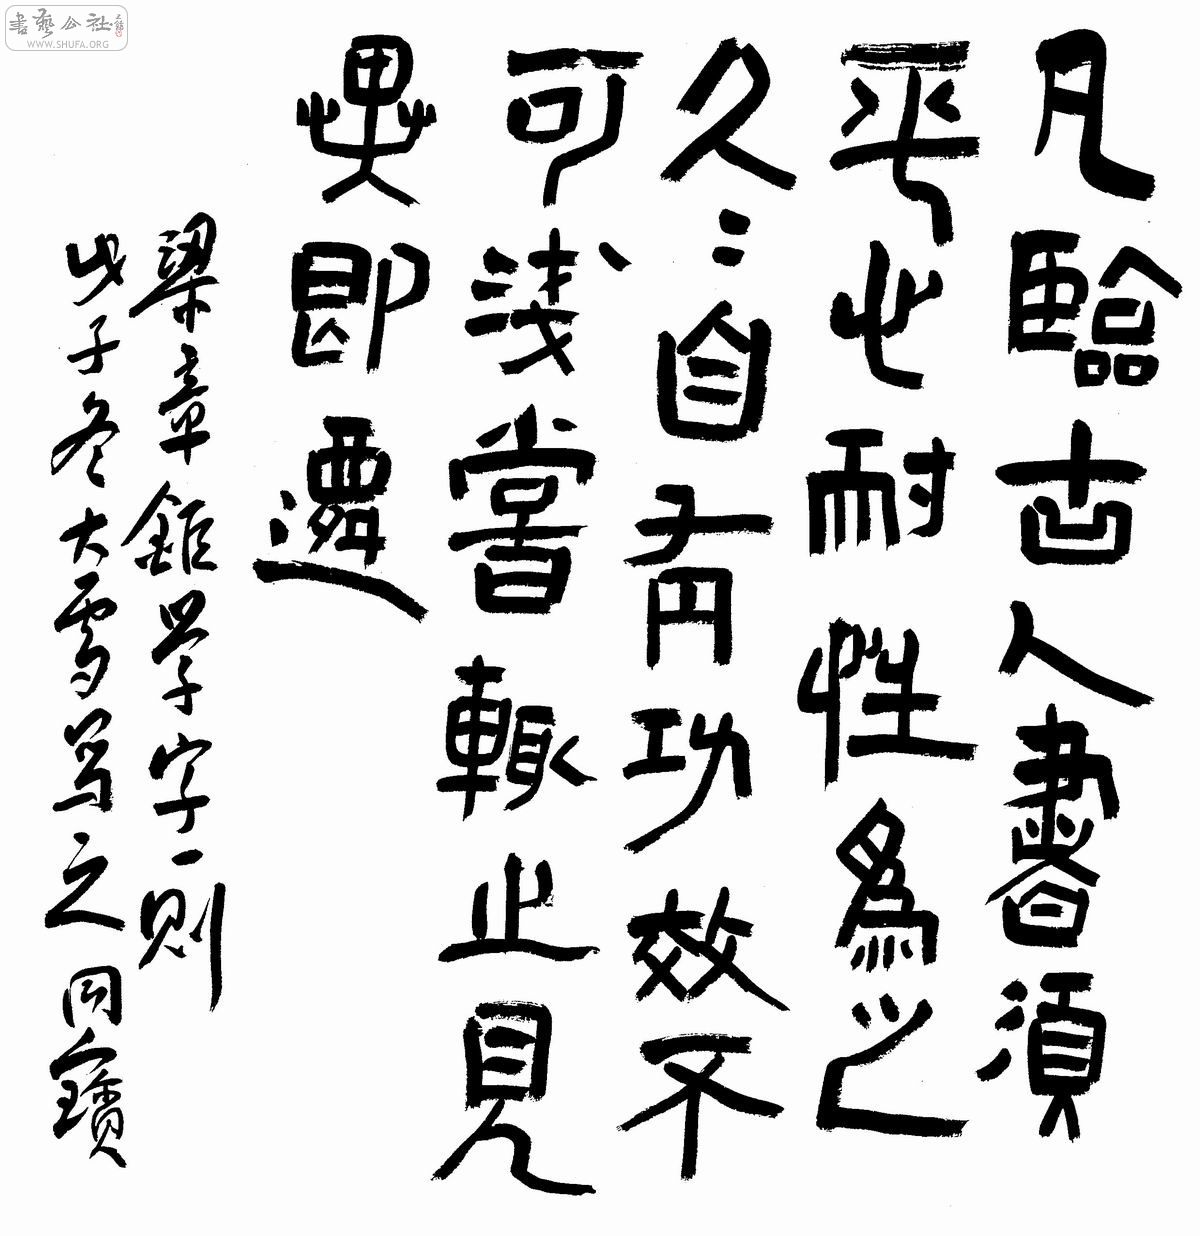 凡臨古人書須
平心耐性爲之
久〻自有功效不
可淺嘗輒止見
異即遷
梁章鉅學字一則
戊子冬大雪写之 同寶
書藝公社
WWW.SHUFA.ORG